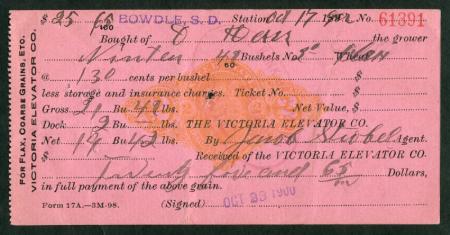 $ 25 63/100 BOWDLE, S. D. Station Oct 17 No. 61391
Bought of O the grower
Ninteen 42/60 Bushels No. 3
@ 130 cents per bushel $
less storage and insurance charges. Ticket No. $
Gross 21 Bu 42 lbs. Net Value, $
Dock 2 Bu lbs. THE VICTORIA ELEVATOR CO.
Net 19 Bu 42 lbs. By Jacob Agent.
$ Received of the VICTORIA ELEVATOR CO.
Twenty five and 63/100 Dollars,
in full payment of the above grain.
OCT 23 1900
Form 17A.—3M-98. (Signed)
FOR FLAX, COARSE GRAINS, ETC.
VICTORIA ELEVATOR CO.